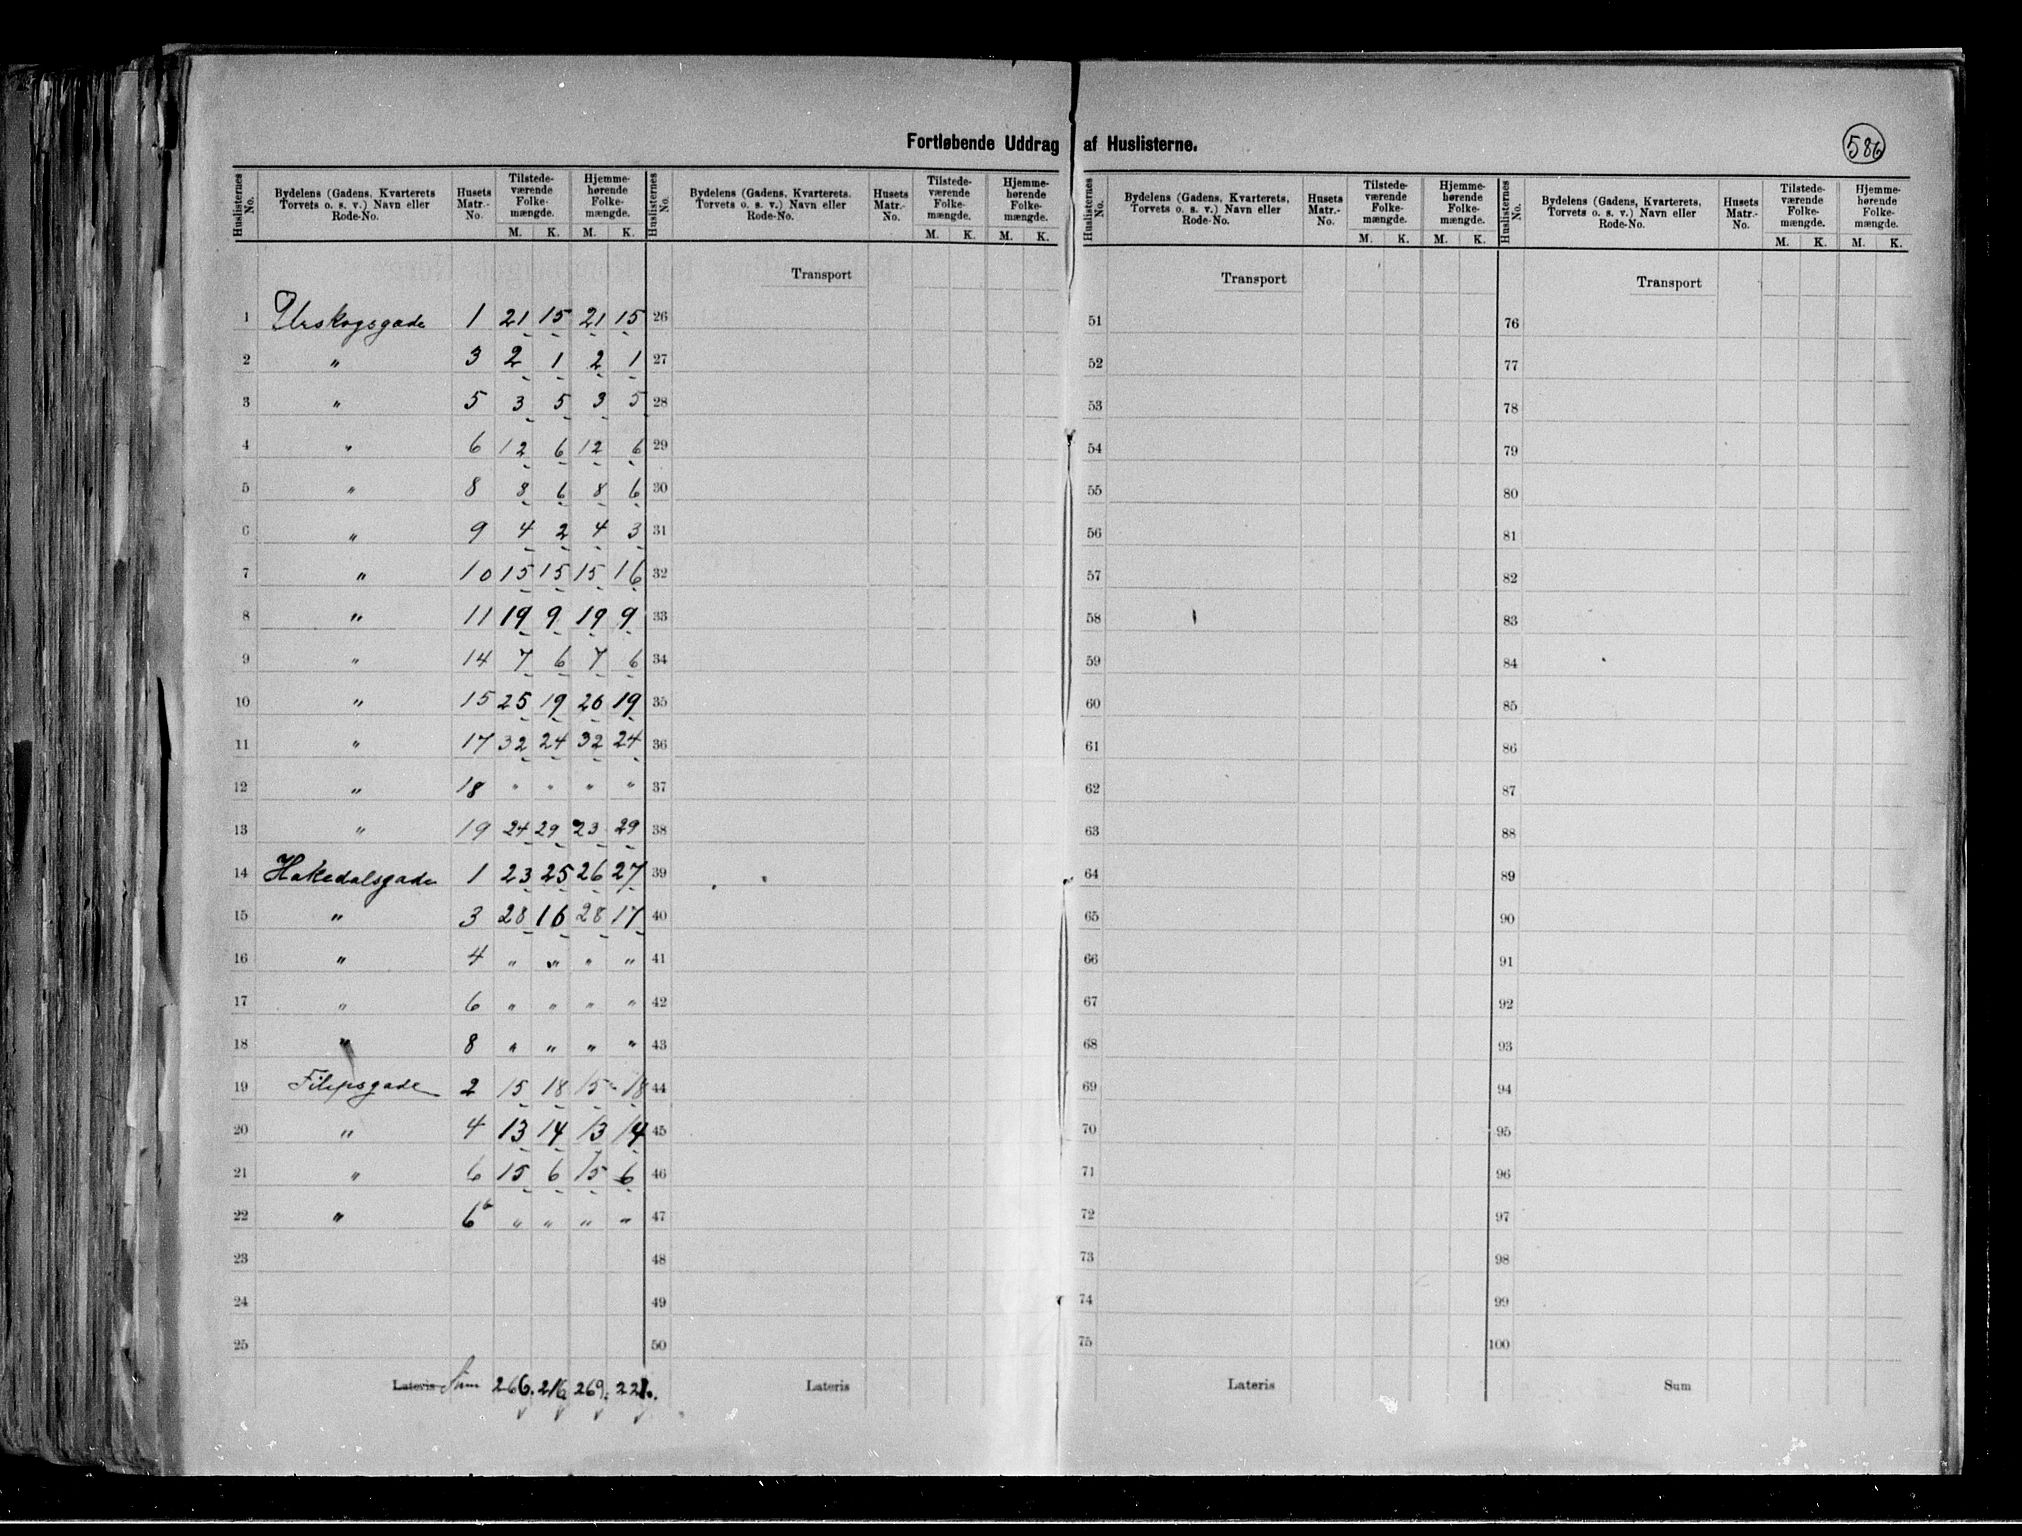 586
Fortløbende Uddrag af Huslisterne.
Huslisternes No. | Bydelens (Gadens, Kvarterets Torvets o. s. v.) Navn eller Rode-No. | Husets Matr.-No. | Tilstede-værende Folke-mængde. M. K. | Hjemme-hørende Folke-mængde. M. K.
Huslisternes No. | Bydelens (Gadens, Kvarterets, Torvets o. s. v.) Navn eller Rode-No. | Husets Matr.-No. | Tilstede-værende Folke-mængde. M. K. | Hjemme-hørende Folke-mængde. M. K.
Huslisternes No. | Bydelens (Gadens, Kvarterets, Torvets o. s. v.) Navn eller Rode-No. | Husets Matr.-No. | Tilstede-værende Folke-mængde. M. K. | Hjemme-hørende Folke-mængde. M. K.
Huslisternes No. | Bydelens (Gadens, Kvarterets, Torvets o. s. v.) Navn eller Rode-No. | Husets Matr.-No. | Tilstede-værende Folke-mængde. M. K. | Hjemme-hørende Folke-mængde. M. K.
Transport Transport Transport
1 Urskogsgade 1 21 15 21 15 26 51 76
2 " 3 2 1 2 1 27 52 77
3 " 5 3 5 3 5 28 53 78
4 " 6 12 6 12 6 29 54 79
5 " 8 8 6 8 6 30 55 80
6 " 9 4 2 4 3 31 56 81
7 " 10 15 15 15 16 32 57 82
8 " 11 19 9 19 9 33 58 83
9 " 14 7 6 7 6 34 59 84
10 " 15 25 19 26 19 35 60 85
11 " 17 32 24 32 24 36 61 86
12 " 18 " " " " 37 62 87
13 " 19 24 29 23 29 38 63 88
14 Hakedalsgade 1 23 25 26 27 39 64 89
15 " 3 28 16 28 17 40 65 90
16 " 4 " " " " 41 66 91
17 " 6 " " " " 42 67 92
18 " 8 " " " " 43 68 93
19 Filipsgade 2 15 18 15 18 44 69 94
20 " 4 13 14 13 14 45 70 95
21 " 6 15 6 15 6 46 71 96
22 " 6b " " " " 47 72 97
23 48 73 98
24 49 74 99
25 50 75 100
Lateris Sum 266. 216. 269. 221. Lateris Lateris Sum